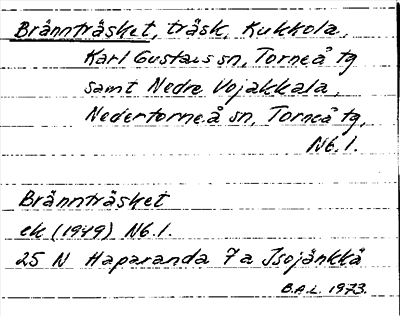 Brännträsket, träsk, Kukkola,
Karl Gustavs sn, Torneå tg
samt Nedre Vojakkala,
Nedertorneå sn, Torneå tg,
Nb. l.
Brännträsket
ek (1949) Nb. l.
25 N Haparanda 7a Isojänkkä
B.A.L. 1973.